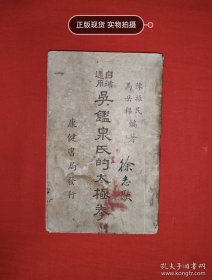 正版现货 实物拍摄
陳振民
馬岳樑 編著
吳鑑泉氏的太極拳
康健書局發行